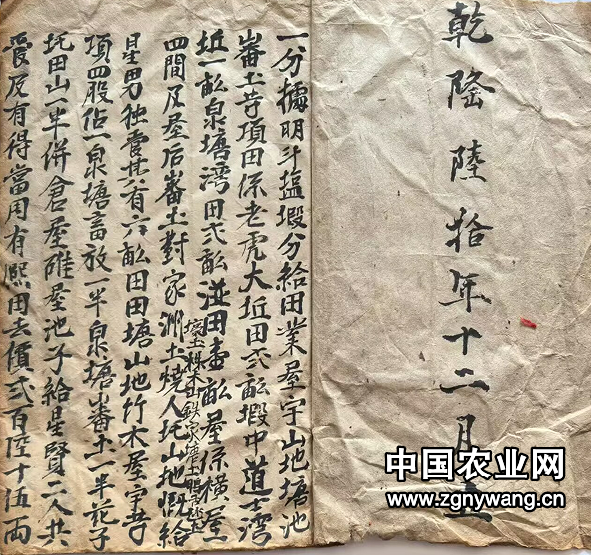 乾隆陸拾年十二月立
一分據明斗塩塅分給田業屋宇山地塘池
畨土等項田係老虎大坵田弍畝塅中道士湾
坵一畝泉塘湾田弍畝田壹畝屋係橫屋
四間及屋后畨土對家洲土燒人坵山地慨給
星男独受共有六畝田田塘山地竹木屋宇等
項四股佔一泉塘畜放一半泉塘畨土一半花子
坵田山一半併倉屋碓屋池子給星賢二人共
受及有得當用有熙田去價弍百陸十伍両
中国农业网
www.zgnywang.cn